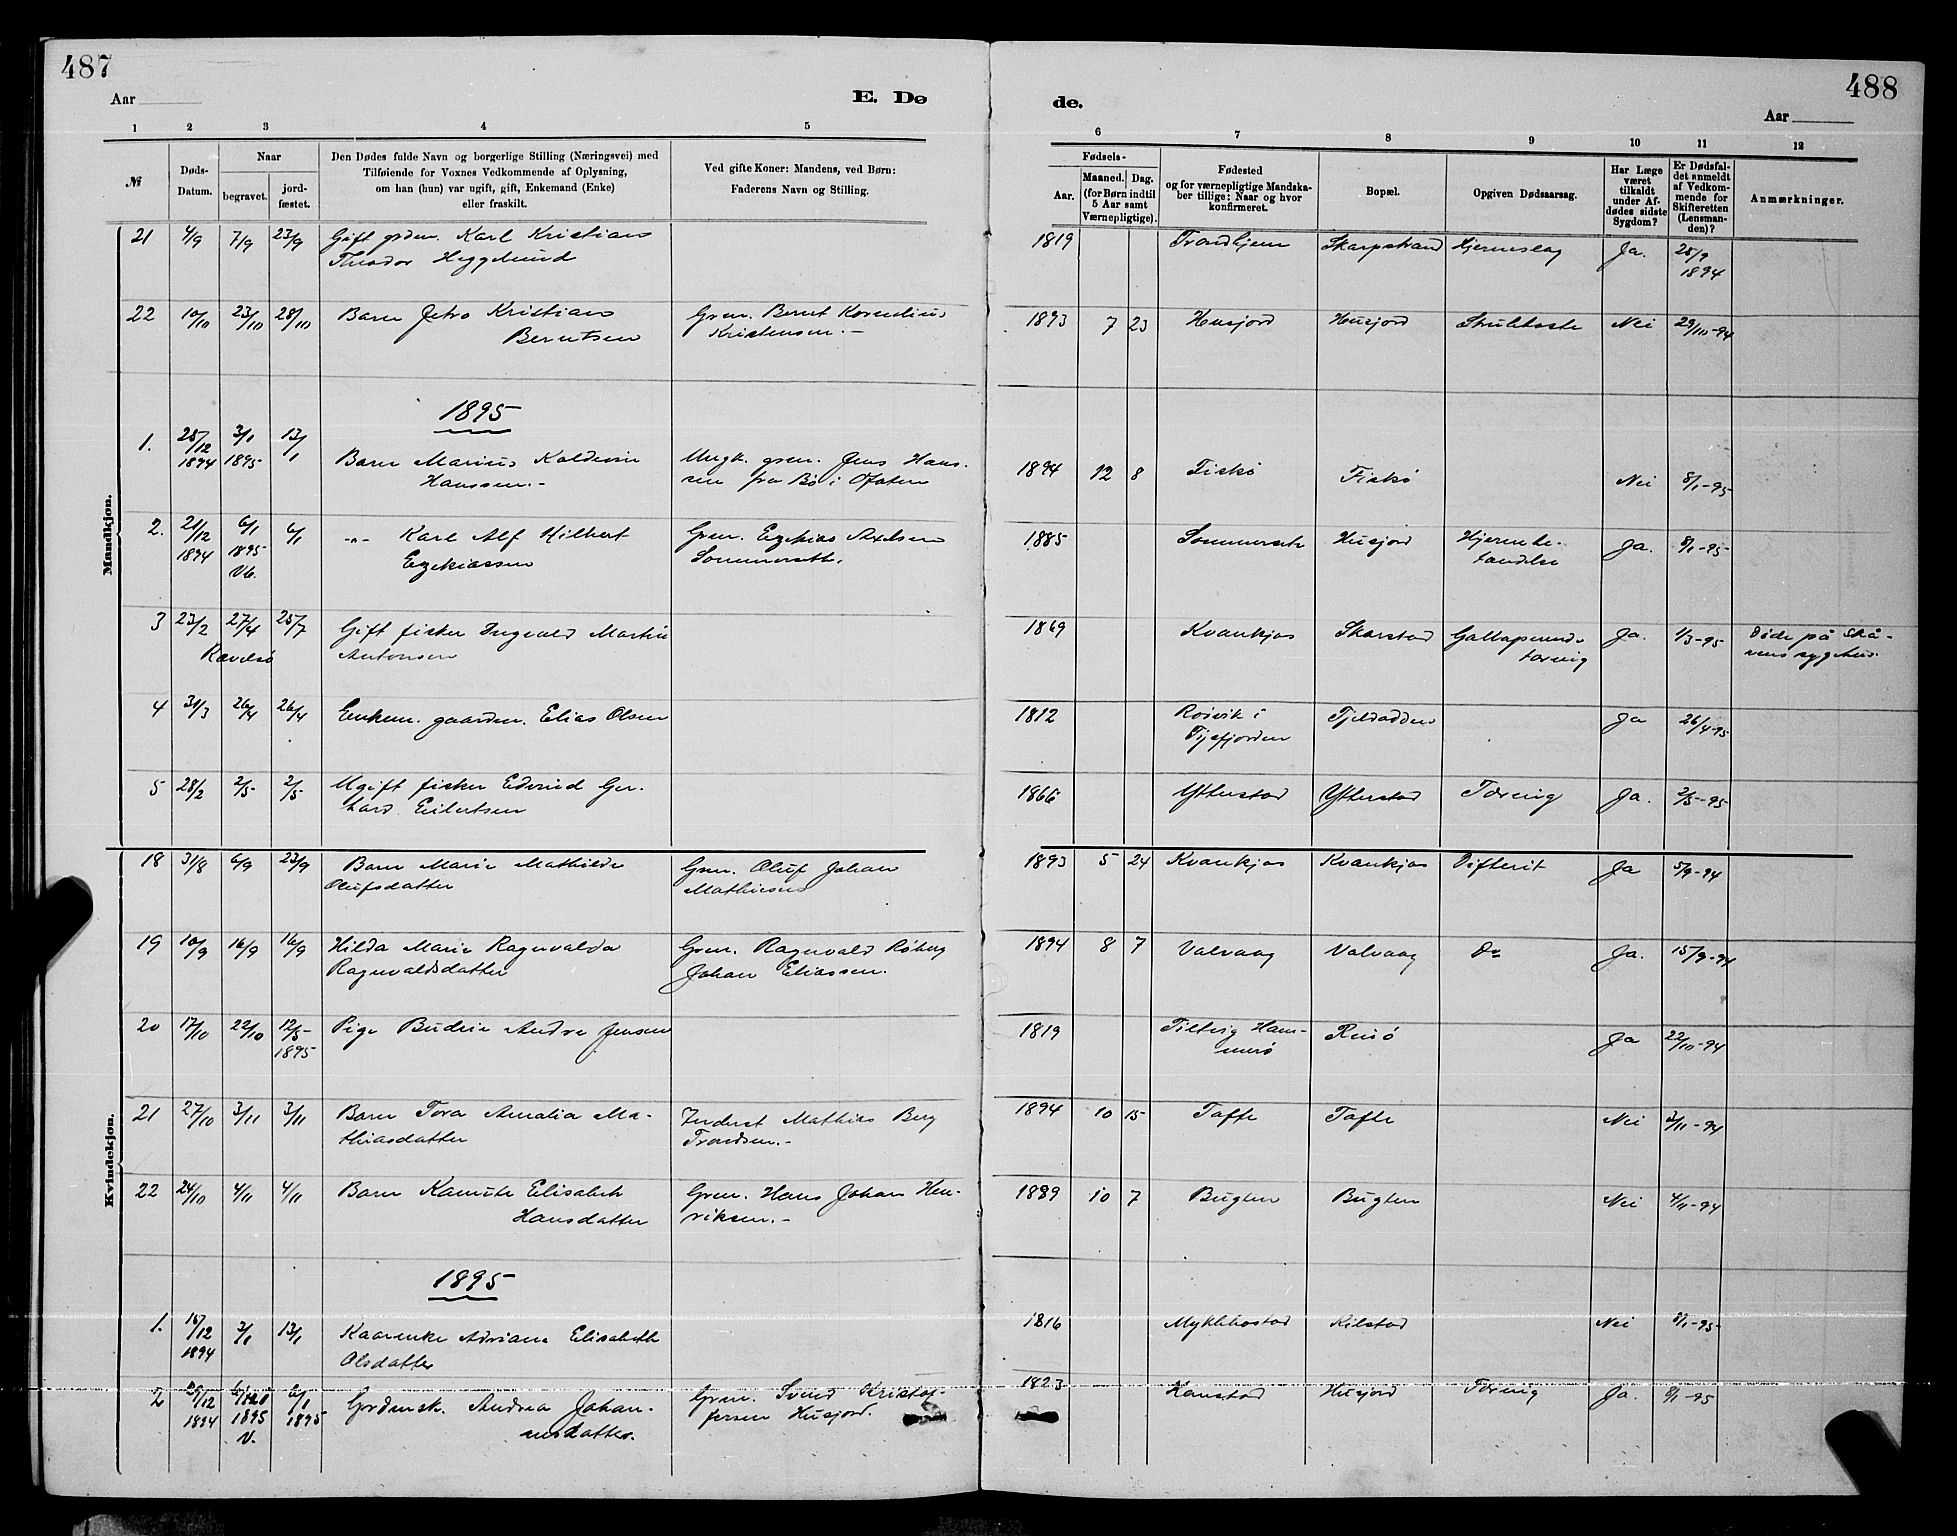 487
488
Aar
E. Dø
de.
Aar
1 2 3 4 5 6 7 8 9 10 11 12
№
Døds-Datum.
Naar
begravet.
jord-fæstet.
Den Dødes fulde Navn og borgerlige Stilling (Næringsvei) med
Tilføiende for Voxnes Vedkommende af Oplysning,
om han (hun) var ugift, gift, Enkemand (Enke)
eller fraskilt.
Ved gifte Koner: Mandens, ved Børn:
Faderens Navn og Stilling.
Fødsels-
Aar.
Maaned. Dag.
(for Børn indtil
5 Aar samt
Værnepligtige).
Fødested
og for værnepligtige Mandska-
ber tillige: Naar og hvor
konfirmeret.
Bopæl.
Opgiven Dødsaarsag.
Har Læge
været
tilkaldt
under Af-
dødes sidste
Sygdom?
Er Dødsfal-
det anmeldt
af Vedkom-
mende for
Skifteretten
(Lensman-
den)?
Anmærkninger.
Mandkjøn.
21 4/9 7/9 23/9 Gift grdm. Karl Kristian 1819 Trondhjem Skarpstrand Hjerneslag Ja. 25/9
Theodor Heggelund 1894
22 10/10 23/10 28/10 Barn Jetro Kristian Grm. Bernt Kornelius 1893 7 23 Husjord Husjord Strubehoste Nei 29/10-94
Berntsen Kristensen.-
1895
1. 25/12 3/1 13/1
1894 1895 Barn Marius Kaldevin Ungk. grm. Jens Hans- 1894 12 8 Fiskø Fiskø Nei 8/1-95
Hanssen.- sen fra Bø i Ofoten
2. 21/12 6/1 6/1 -"- Karl Alf Hilbert Grm. Ezekias Axelsen 1885 Sommerset Husjord Hjernebe- Ja. 8/1-95
1894 1895 Ezekiassen Sommerseth. tændelse
3 23/2 27/4 25/7 Gift fisker Ingvald Martin 1869 Kvankjos Skarstad Ja. 1/3-95 Døde på Skå-
Antonsen tæring vens sygehus.
4 31/3 26/4 26/4 Enkem. gaardm. Elias Olsen 1812 Røivik i Tjeldodden Ja 26/4-95
5 28/2 2/5 2/5 Ugift fisker Edvind Ger- 1866 Ytterstad Ytterstad Tæring Ja. 2/5-95
hard Eilertsen
Kvindekjøn.
18 31/8 6/9 23/9 Barn Marie Mathilde Grm. Oluf Johan 1893 5 24 Kvankjos Kvankjos Difterit Ja 5/9-94
Olufsdatter Mathiesen
19 10/9 16/9 16/9 Hilda Marie Ragnvalda Grm. Ragnvald Røberg 1894 8 7 Valvaag Valvaag Do Ja. 15/9-94
Ragnvaldsdatter Johan Eliassen.
20 17/10 22/10 12/5- Pige Andrea Jensen 1819 Tiltvig Ham- Ja 22/10-94
1895 merø
21 27/10 3/11 3/11 Barn Tora Amalia Ma- Inderst Mathias Berg 1894 10 15 Tofte Tofte Nei 3/11-94
thiasdatter Trondsen.-
22 24/10 4/11 4/11 Barn Kamilla Elisabeth Grm. Hans Johan Hen- 1889 10 7 Bugten Bugten Nei 4/11-94
Hansdatter riksen.-
1895
1. 15/12 3/1 13/1 Adriana Elisabeth 1816 Myklebostad Kilstad Nei 8/1-95
1894 Olsdatter
2 29/12 6/1 Andrea Johan- Grm. Svend Kristof- 1823 Kanstad Husjord Tæring Ja. 8/1-95
1894 1895 1895 nesdatter. fersen Husjord.